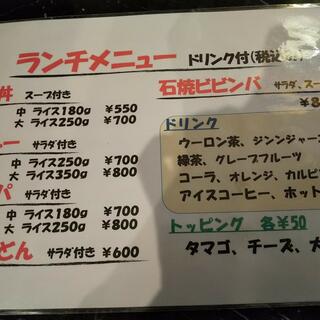 ランチメニュー ドリンク付(税込
丼 スープ付き
中 ライス180g ¥550
大 ライス250g ¥700
ー サラダ付き
中 ライス250g ¥700
大 ライス350g ¥800
パ サラダ付き
中 ライス180g ¥700
大 ライス250g ¥800
どん サラダ付き ¥600
石焼ビビンバ サラダ、ス
¥8
ドリンク
ウーロン茶、ジンンジャー
緑茶、グレープフルーツ
コーラ、オレンジ、カルピ
アイスコーヒー、ホット
トッピング 各¥50
タマゴ、チーズ、大